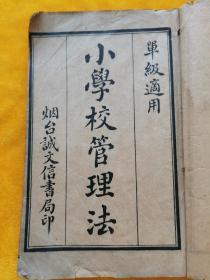 單級適用
小學校管理法
烟台誠文信書局印